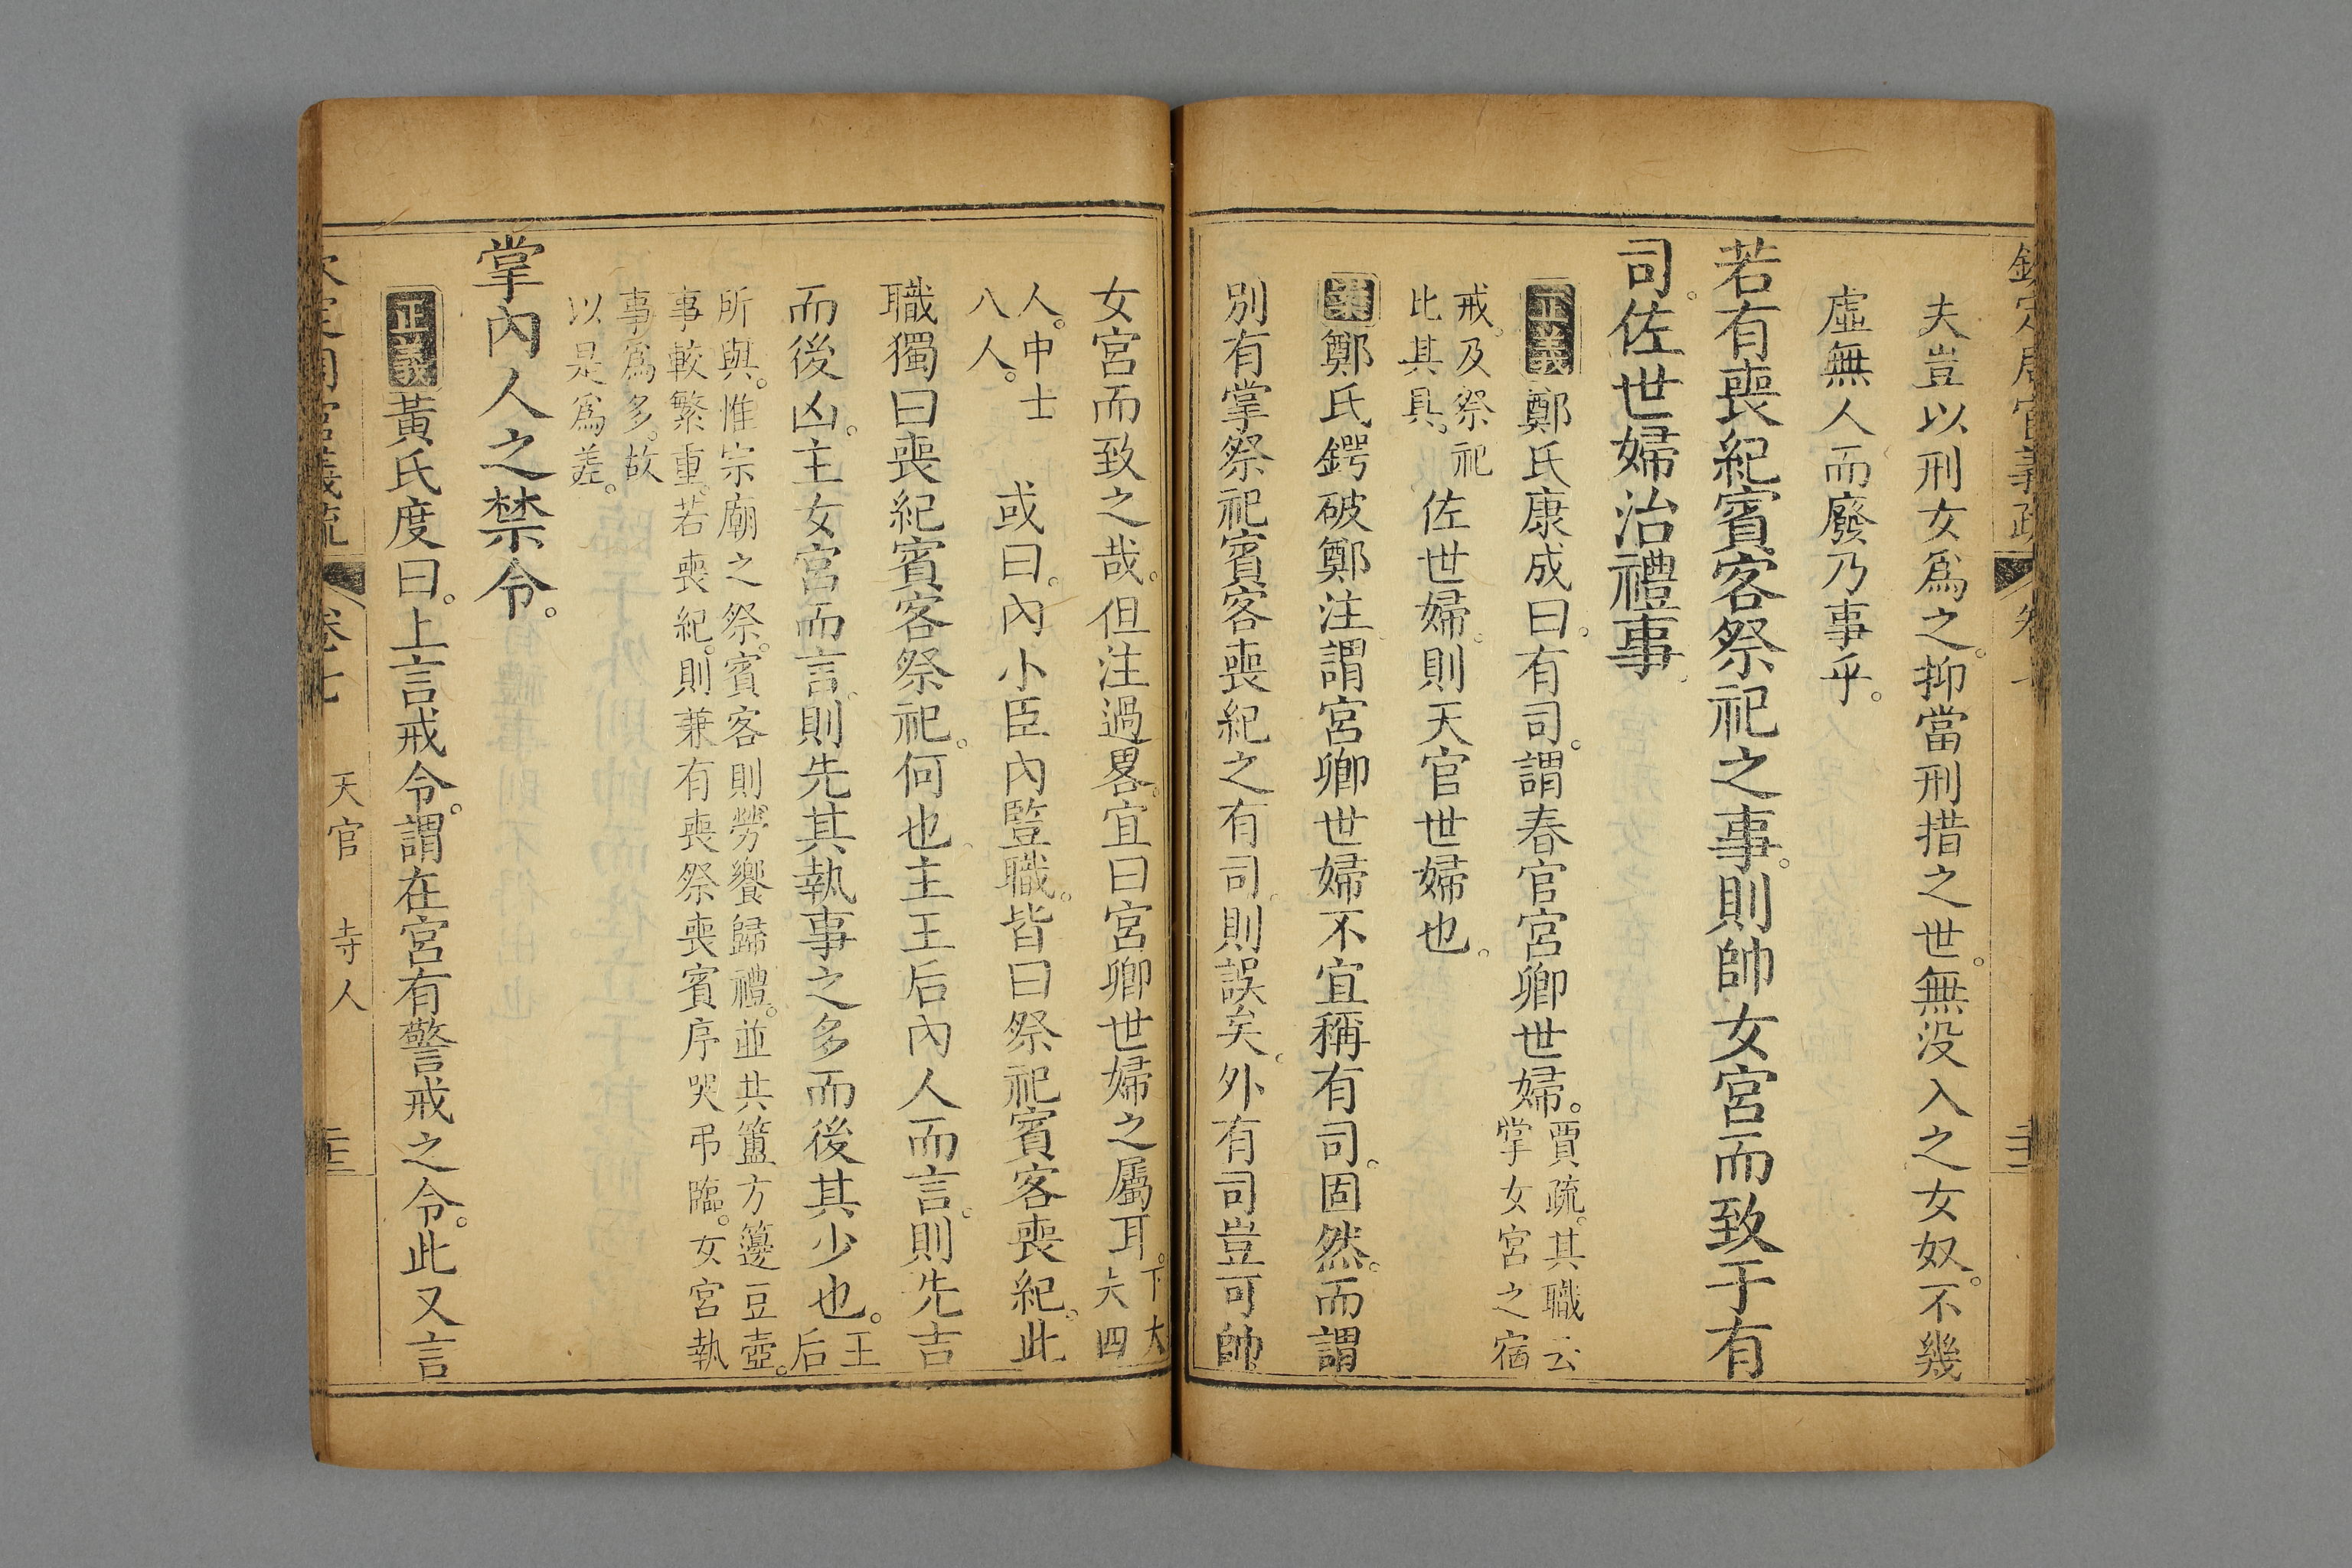 夫豈以刑女爲之。抑當刑措之世。無没入之女奴。不幾
虛無人而廢乃事乎。
若有喪紀賓客祭祀之事。則帥女宮而致于有
司。佐世婦治禮事。
正義鄭氏康成曰。有司。謂春官宮卿世婦。賈疏。其職云
掌女宮之宿
戒。及祭祀
比其具。佐世婦。則天官世婦也。
案鄭氏鍔破鄭注謂宮卿世婦不宜稱有司。固然。而謂
別有掌祭祀賓客喪紀之有司。則誤矣。外有司豈可帥
女宮而致之哉。但注過畧。宜曰宮卿世婦之屬耳。下大
夫四
人。中士
八人。或曰。內小臣內豎職。皆曰祭祀賓客喪紀。此
職獨曰喪紀賓客祭祀。何也。主王后內人而言。則先吉
而後凶。主女宮而言。則先其執事之多而後其少也。王
后
所與。惟宗廟之祭。賓客則勞饗歸禮。並共簠方籩豆壺。
事較繁重。若喪紀。則兼有喪祭喪賓序哭弔臨。女宮執
事爲多。故
以是爲差。
掌內人之禁令。
正義黃氏度曰。上言戒令。謂在宮有警戒之令。此又言
卷七
天官
寺人